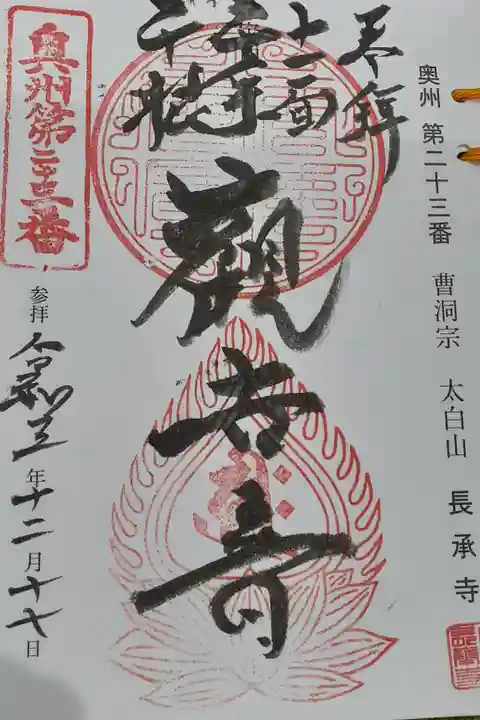 奥州 第二十三番 曹洞宗 太白山 長承寺
奉拝
十一面
千手
千躰
觀世音
奥州第二十三番
参拝 令和五年十二月十七日